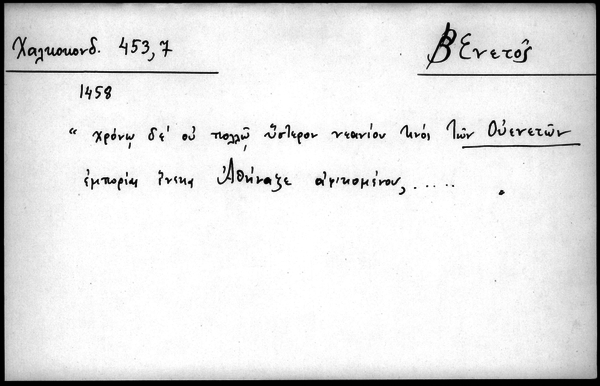 Χαλκοκονδ. 453,7
Βενετός
1458
" χρόνῳ δέ οὐ πολλῷ ὕστερον νεανίου τινός τῶν Οὐενετῶν
ἐμπορίας ἕνεκα Ἀθήναζε ἀφικομένου, .....